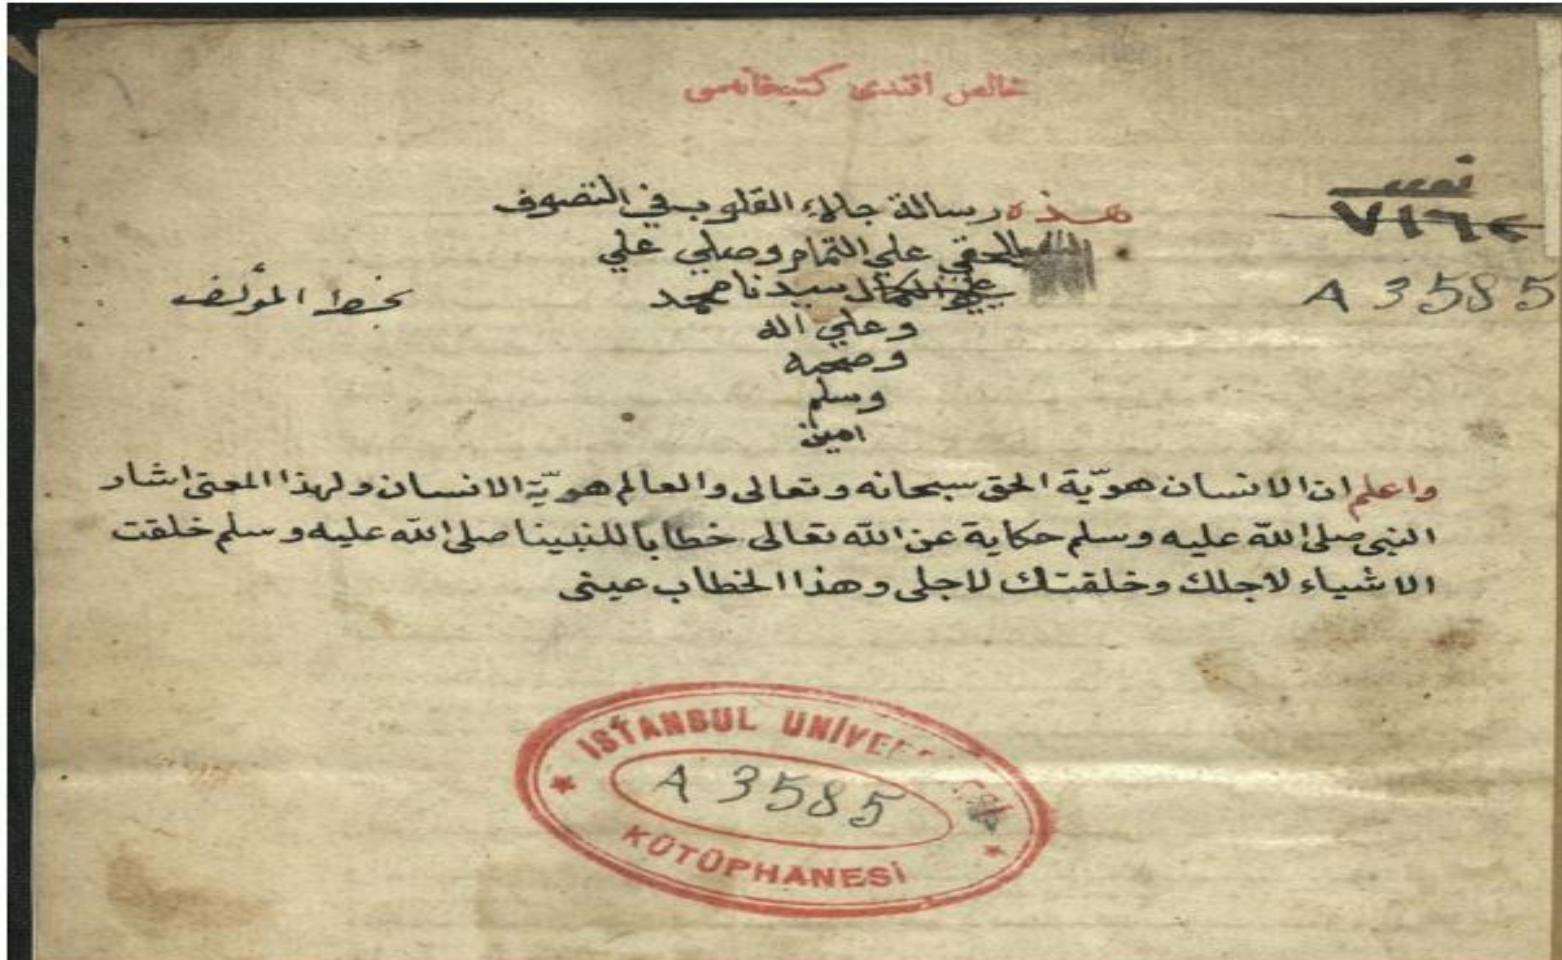 خالص افندی کتبخانه‌سی
هذه رسالة جالاء القلوب في التصوف
علي التمام وصلي علي
سيدنا محمد
وعلي اله
وصحبه
وسلم
امين
بخط المؤلف
نومرو
٧١٦٢
A 3585
واعلم ان الانسان هويّة الحق سبحانه وتعالى والعالم هويّة الانسان ولهذا المعنى اشار
النبي صلى الله عليه وسلم حكاية عن الله تعالى خطابا للنبينا صلى الله عليه وسلم خلقت
الاشياء لاجلك وخلقتك لاجلى وهذا الخطاب عينى
ISTANBUL ÜNİVE
A 3585
KÜTÜPHANESİ